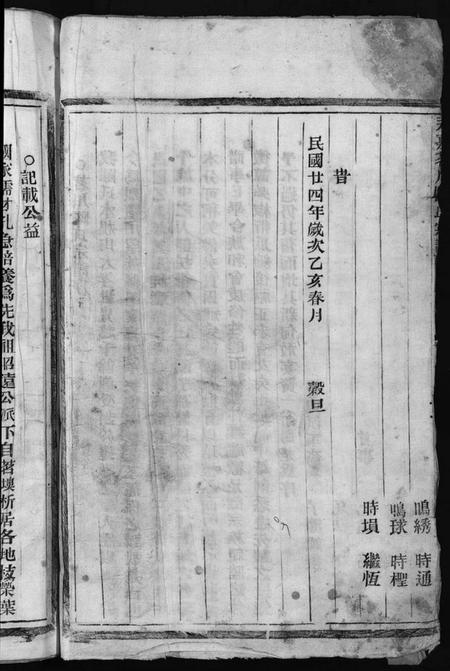 鳴綉 時通
鳴球 時𣚣
時塤 繼恆
旹
民國廿四年歲次乙亥春月 穀旦
○記載公益
國家儲才孔急培養爲先我祖昭遠公派下自茗壊析居各地枝榮葉